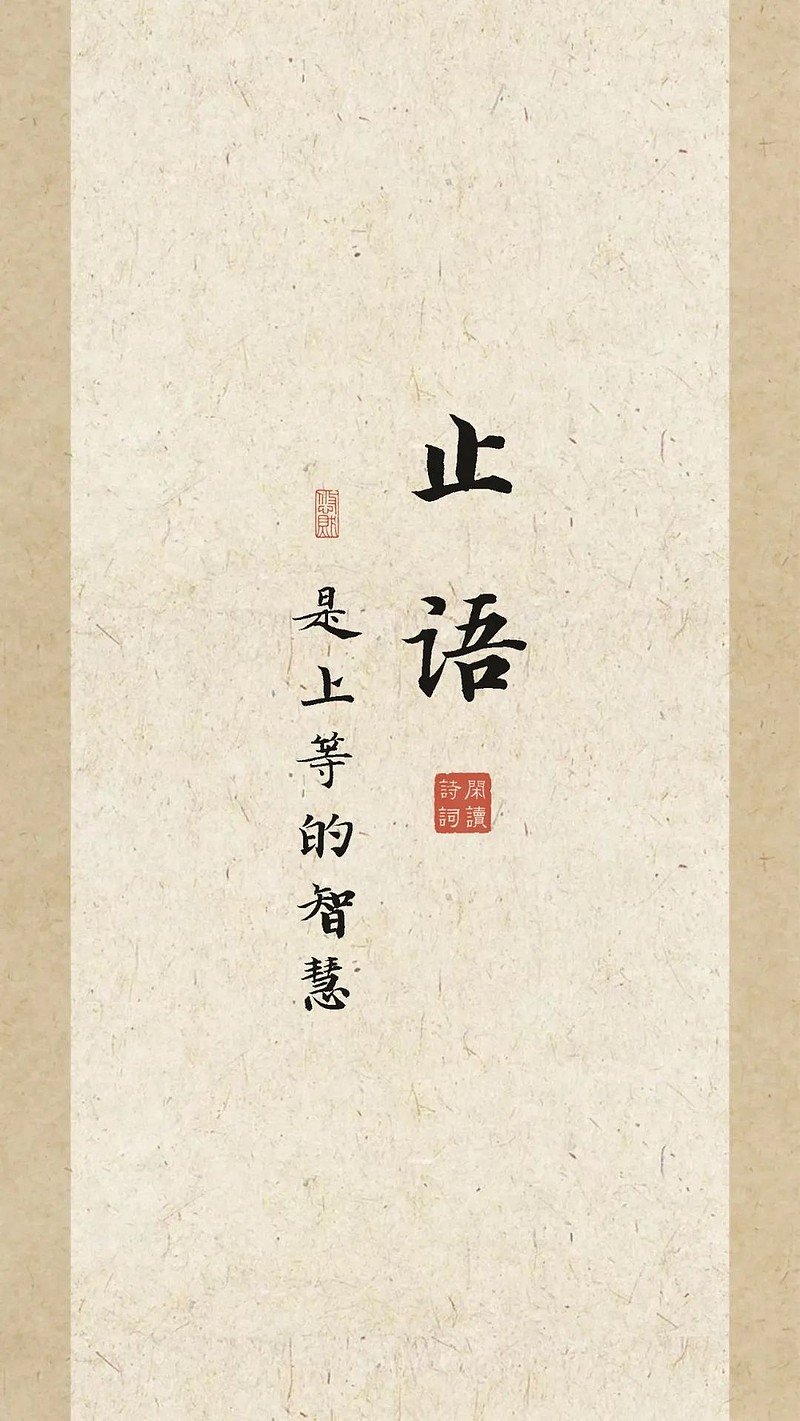 止语
閑讀詩詞
是上等的智慧